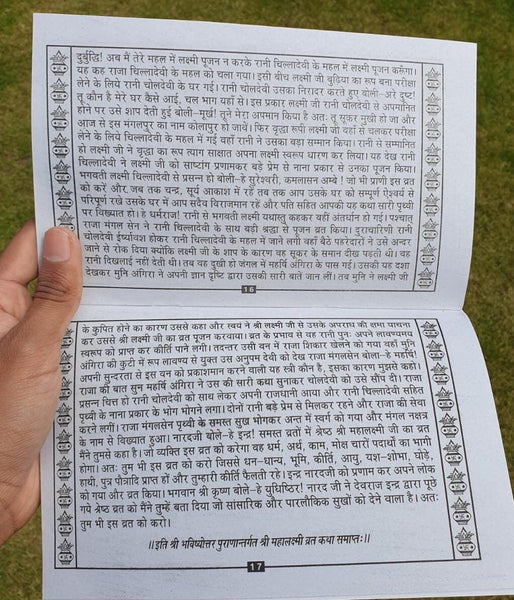 दुर्बुद्धि! अब मैं तेरे महल में लक्ष्मी पूजन न करके रानी चिल्लादेवी के महल में लक्ष्मी पूजन करूँगा।
यह कह राजा चिल्लादेवी के महल को चला गया। इसी बीच लक्ष्मी जी बुढ़िया का रूप बना परीक्षा
लेने के लिये रानी चोलदेवी के घर गई। रानी चोलदेवी उसका निरादर करते हुए बोली-अरे दुष्ट!
तू कौन है मेरे घर कैसे आई, चल भाग यहाँ से। इस प्रकार लक्ष्मी जी रानी चोलदेवी से अपमानित
होने पर उसे शाप देती हुई बोली-मूर्ख! तूने मेरा अपमान किया है अतः तू सूकर मुखी हो जा और
आज से इस मंगलपुर का नाम कोलापुर हो जावे। फिर वृद्धा रूपी लक्ष्मी जी वहाँ से चलकर परीक्षा
लेने के लिये चिल्लादेवी के महल में गई वहाँ रानी ने उसका बड़ा सम्मान किया। रानी से सम्मानित
हो लक्ष्मी जी ने वृद्धा का रूप त्याग साक्षात अपना लक्ष्मी स्वरूप धारण कर लिया। यह देख रानी
चिल्लादेवी ने लक्ष्मी जी को साष्टांग प्रणामकर बड़े प्रेम से नाना प्रकार से उनका पूजन किया।
भगवती लक्ष्मी चिल्लादेवी से प्रसन्न हो बोली-हे सुरेश्वरी, कमलासन अम्बे ! जो भी प्राणी इस व्रत
को करें और जब तक चन्द्र, सूर्य आकाश में रहें तब तक आप उसके घर को सम्पूर्ण ऐश्वर्य से
परिपूर्ण रखे उसके घर में आप सदैव विराजमान रहें और पति सहित आपकी यह कथा सारी पृथ्वी
पर विख्यात हो। हे धर्मराज! रानी से भगवती लक्ष्मी यथास्तु कहकर वहीं अंतर्धान हो गई। पश्चात्
राजा मंगल सेन ने रानी चिल्लादेवी के साथ बड़ी श्रद्धा से पूजन व्रत किया। दुराचारिणी रानी
चोलदेवी ईर्ष्यावश होकर रानी चिल्लादेवी के महल में जाने लगी वहाँ बैठे पहरेदारों ने उसे अन्दर
जाने से रोक दिया क्योंकि लक्ष्मी जी के शाप के कारण वह सूकर के समान दीख पड़ती थी। वह
रानी दिखलाई नहीं देती थी। तब वह दुखी हो जंगल में महर्षि अंगिरा के पास गई। उसकी यह दशा
देखकर मुनि अंगिरा ने अपनी ज्ञान दृष्टि द्वारा उसकी सारी बातें जान लीं। तब मुनि ने लक्ष्मी जी
16
के कुपित होने का कारण उससे कहा और स्वयं ने श्री लक्ष्मी जी से उसके अपराध की क्षमा याचना
कर उससे श्री लक्ष्मी जी का व्रत पूजन करवाया। व्रत के प्रभाव से वह रानी पुनः अपने लावण्यमय
स्वरूप को प्राप्त कर कीर्ति पाने लगी। तदन्तर उसी वन में राजा शिकार खेलने को गया वहाँ मुनि
अंगिरा की कुटी में रूप लावण्य से युक्त उस अनुपम देवी को देख राजा मंगलसेन बोला-हे महर्षि!
अपनी सुन्दरता से इस वन को प्रकाशमान करने वाली यह स्त्री कौन है, इसका कारण मुझसे कहो।
राजा की बात सुन महर्षि अंगिरा ने उस की सारी कथा सुनाकर चोलदेवी को उसे सौंप दी। राजा
प्रसन्न चित्त हो रानी चोलदेवी को साथ लेकर अपनी राजधानी आया और रानी चिल्लादेवी सहित
पृथ्वी के नाना प्रकार के भोग भोगने लगा। दोनों रानी बड़े प्रेम से मिलकर रहने और राजा की सेवा
करने लगीं। राजा मंगलसेन पृथ्वी के समस्त सुख भोगकर अन्त में स्वर्ग को गया और मंगल नक्षत्र
के नाम से विख्यात हुआ। नारदजी बोले-हे इन्द्र! समस्त व्रतों में श्रेष्ठ श्री महालक्ष्मी जी का व्रत
मैंने तुमसे कहा है। जो व्यक्ति इस व्रत को करेगा वह धर्म, अर्थ, काम, मोक्ष चारों पदार्थों का भागी
होगा। अतः तुम भी इस व्रत को करो जिससे धन-धान्य, भूमि, कीर्ति, आयु, यश-शोभा, घोड़े,
हाथी, पुत्र पौत्रादि प्राप्त हों और तुम्हारी कीर्ति फैलती रहे। इन्द्र नारदजी को प्रणाम कर अपने लोक
को गया और व्रत किया। भगवान श्री कृष्ण बोले-हे युधिष्ठिर! नारद जी ने देवराज इन्द्र द्वारा पूछे
गये श्रेष्ठ व्रत को मैंने तुम्हें बता दिया जो सांसारिक और पारलौकिक सुखों को देने वाला है। अतः
तुम भी इस व्रत को करो।
॥इति श्री भविष्योत्तर पुराणान्तर्गत श्री महालक्ष्मी व्रत कथा समाप्तः॥
17